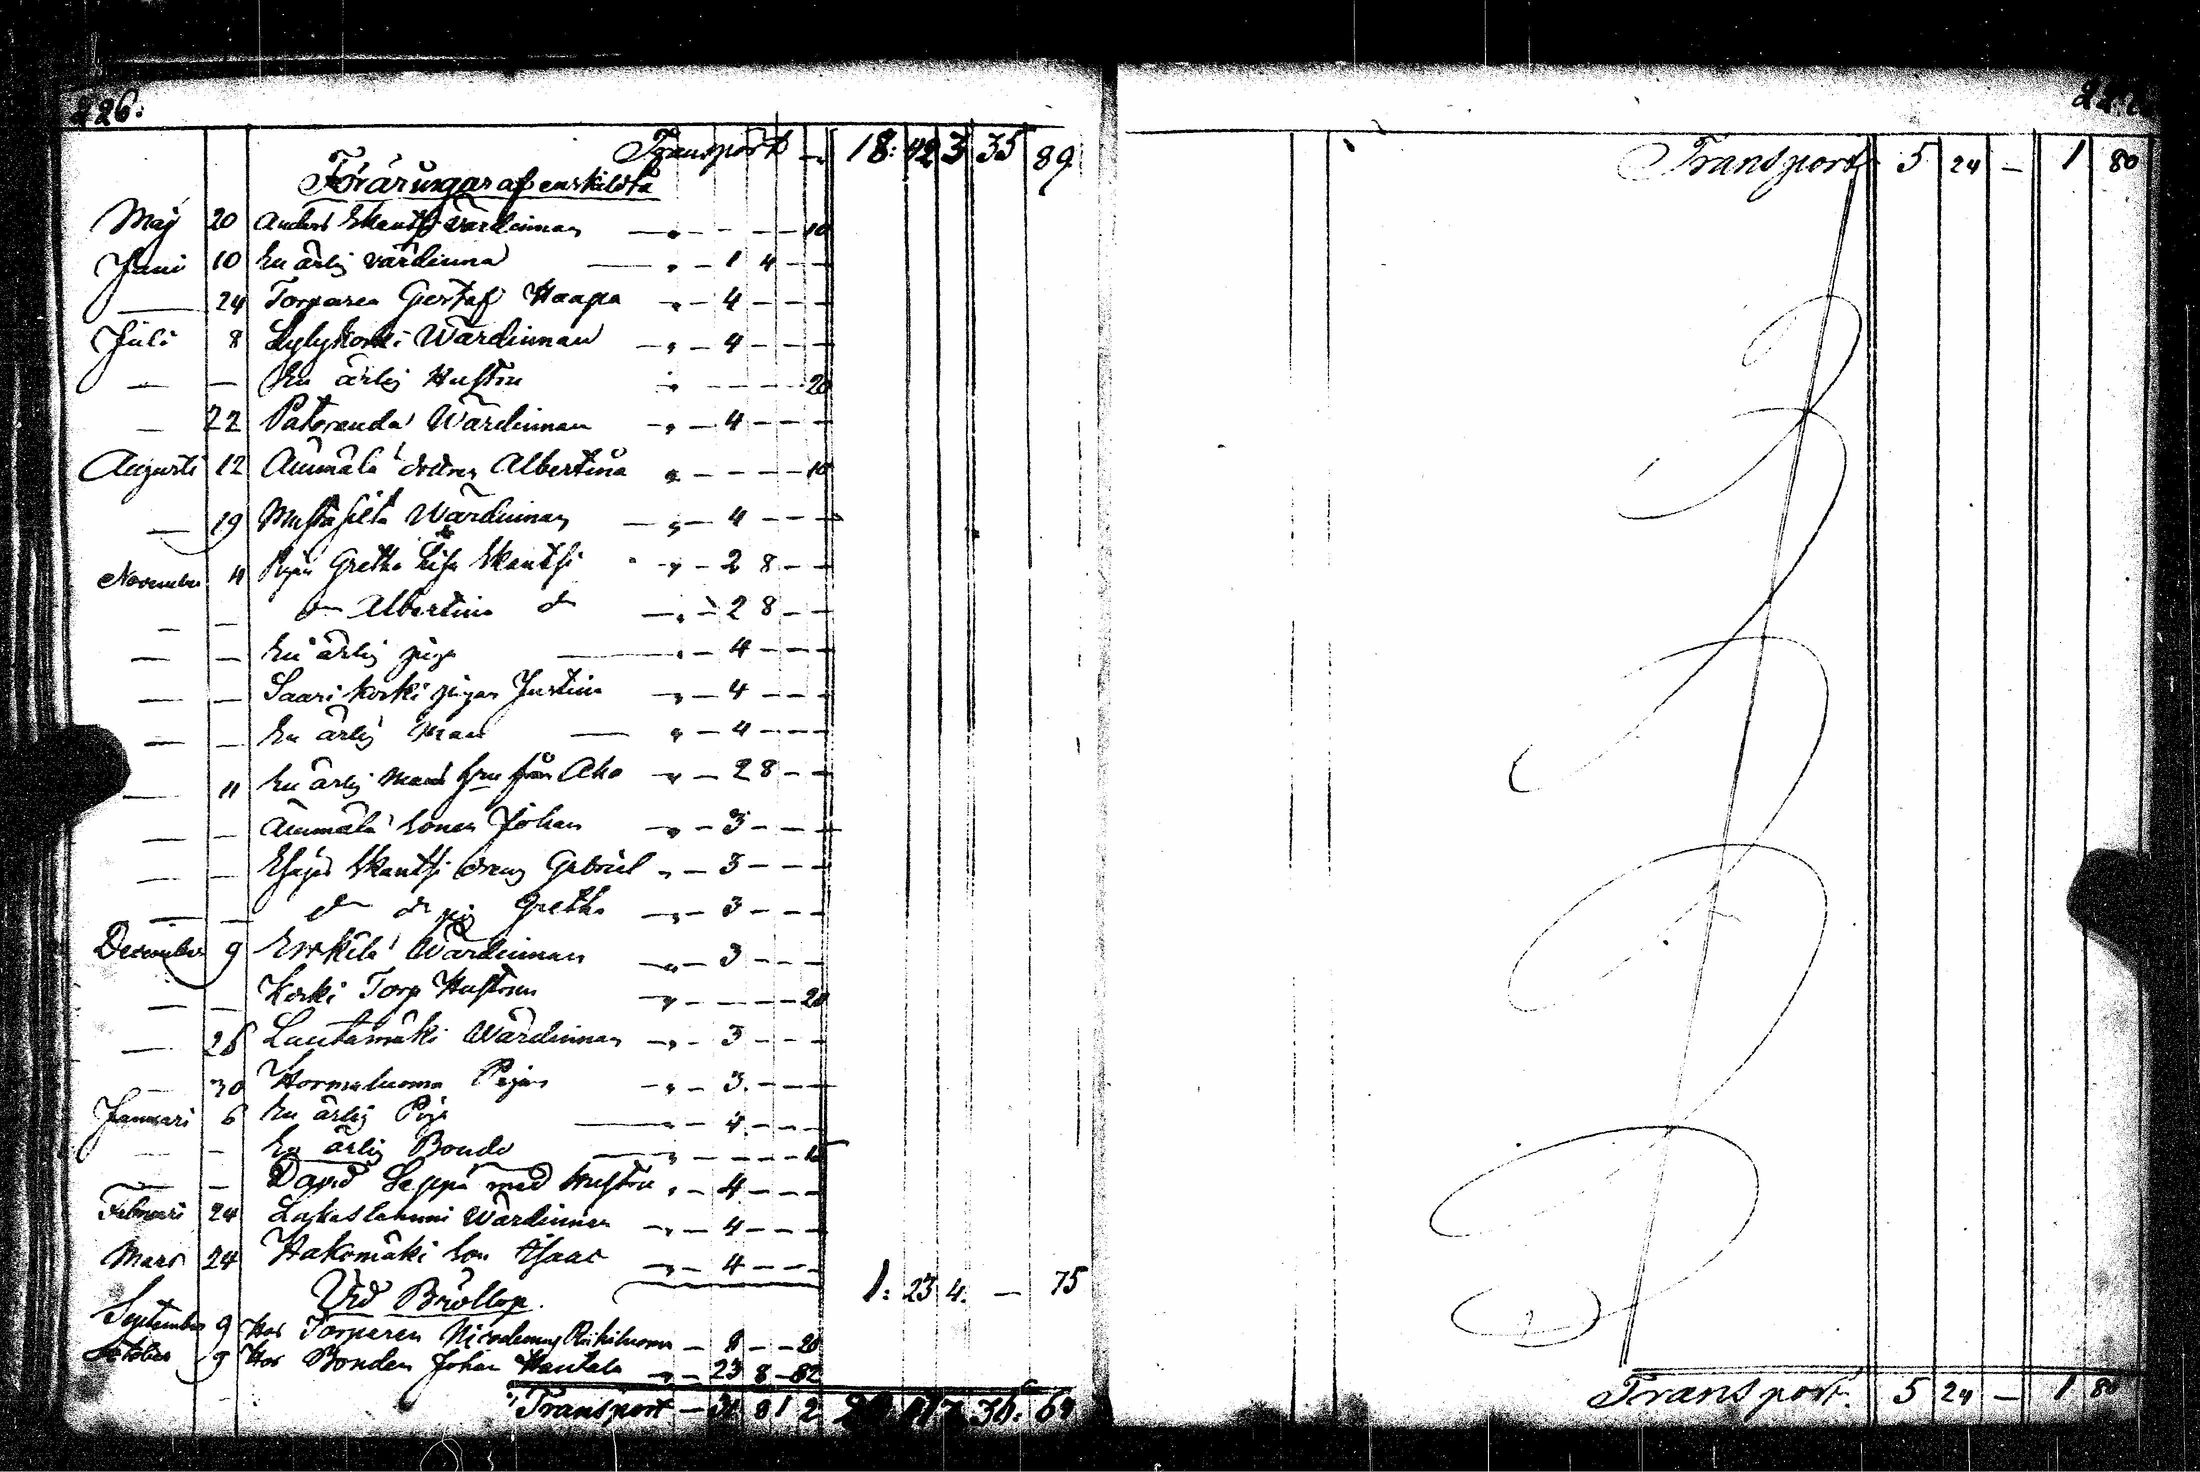 226.
Transport — 18: 42 3 35 89
Föräringar af enskildta
Maj 20 Anders Skantsi Värdinnan — „ - - - - 10
Juni 10 En ärlig värdinna — „ - 1 4 - -
— 24 Torparen Gustaf Haapa „ - 4 - - -
Juli 8 Lylykoski Wärdinnan — „ - 4 - - -
— — En ärlig Hustru „ - - - - 20
— 22 Patoranda Wärdinnan - „ - 4 - - -
Augusti 12 Ämmälä dottren Albertina „ - - - - 10
— 19 Mustasilta Wärdinnan — „ - 4 - - -
November 4 Pigan Gretha Lisa Skantsi „ - 2 8 - -
— — do Albertina do — „ - 2 8 - -
— — En ärlig piga — „ - 4 - - -
— — Saarikoski pigan Justina — „ - 4 - - -
— — En ärlig Man — „ - 4 - - -
— 11 En ärlig Mans från Aho „ - 2 8 - -
— — Ämmälä Sonen Johan — „ - 3 - - -
— — Esajas Skantsi dreng Gabriel - „ - 3 - - -
— — do do pig Gretha — „ - 3 - - -
December 9 Erkkilä Wärdinnan — „ - 3 - - -
— — Koski Torp Hustrun — „ - - - - 20
— 26 Lautamäki Wärdinnan — „ - 3 - - -
— 30 Hormaluoma Pigan - „ - 3. - - -
Januari 6 En ärlig Piga — „ - 4 - - -
— — En ärlig Bonde — „ - - - -
— — David Seppä med Hustru „ - 4 - - -
Februari 24 Wärdinnan — „ - 4 - - -
Mars 24 Hakomäki Son Isaac — „ - 4 - - -
1: 23 4. — 75
Vid Bröllop.
September 9 Hos Torparen Nicodemus Riihiluoma — 8 - - 20
October 9 Hos Bonden Johan Hautala „ - 23 8 - 82
Transport — 31 8 1 2 20 17 36. 64
Transport 5 24 — 1 80
Transport. 5 24 — 1 80